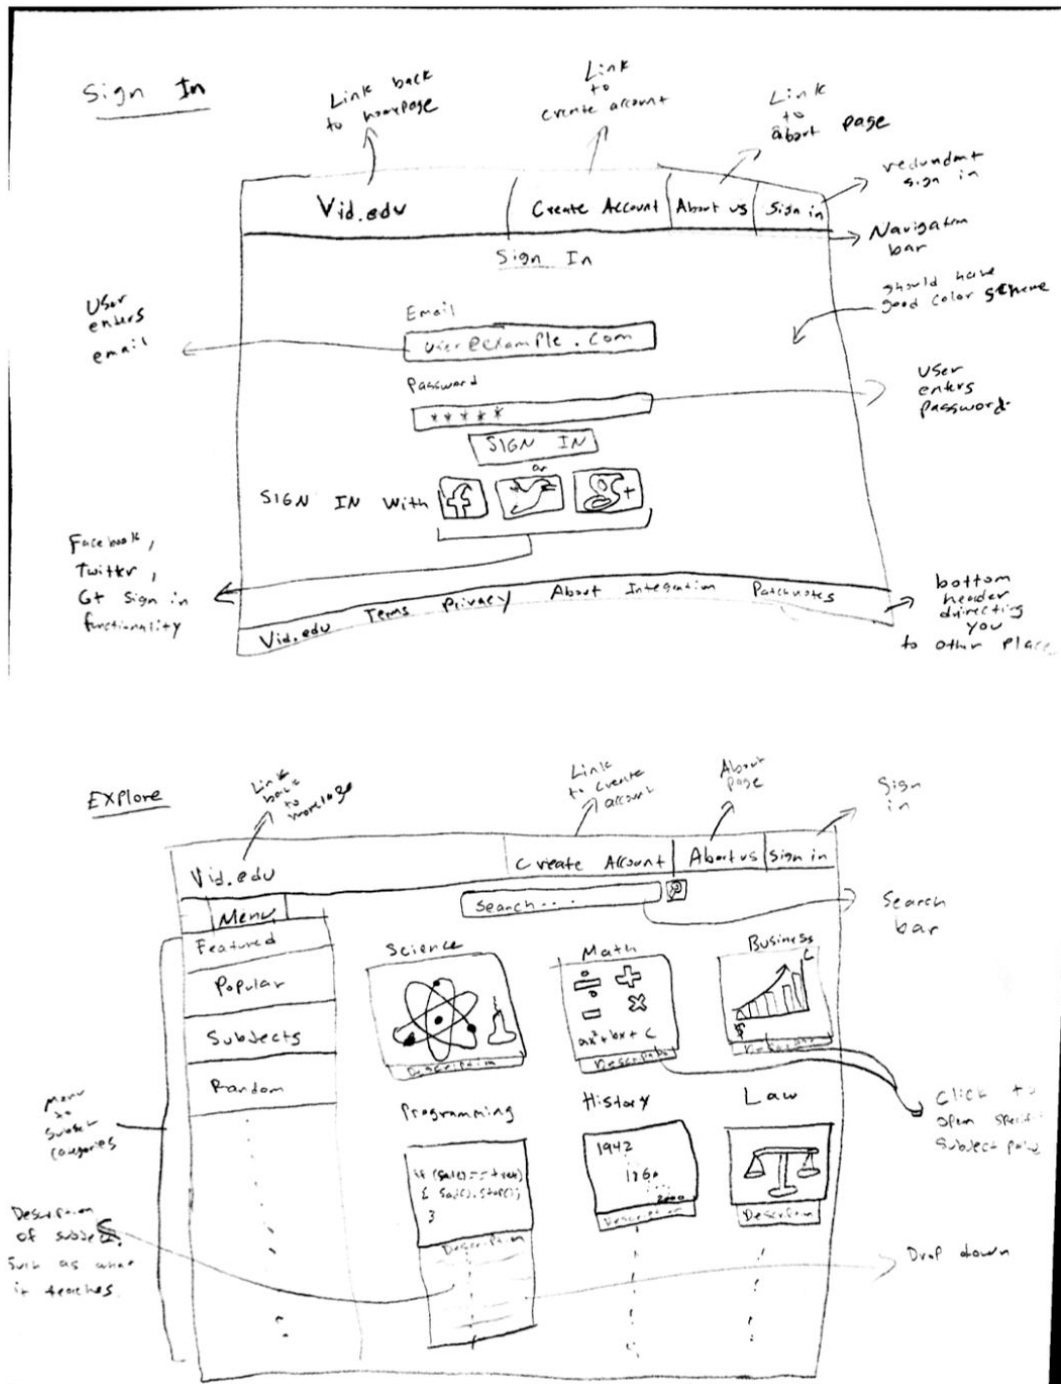 Sign In
Link back
to homepage
Link
to
create account
Link
to
about page
redundant
sign in
Vid.edu
Create Account
About us
Sign in
Navigation
bar
Sign In
should have
good color scheme
User
enters
email
Email
user@example.com
Password
*****
User
enters
password
SIGN IN
or
SIGN IN with
f
G+
Facebook,
Twitter,
G+ sign in
functionality
Vid.edu
Terms
Privacy
About
Integration
Patchnotes
bottom
header
directing
you
to other place
Explore
Link
back
to
Link
to create
account
About
page
Sign
in
Vid.edu
Create Account
About us
Sign in
Menu
Search...
Search
bar
Featured
Popular
Subjects
Random
Science
Math
Business
ax²+bx+c
$
Description
Description
Menu
categories
Programming
History
Law
click to
open
subject
if (
{
}
1942
2000
Description
Description
Description
Description
of subject.
Such as what
it teaches.
Drop down